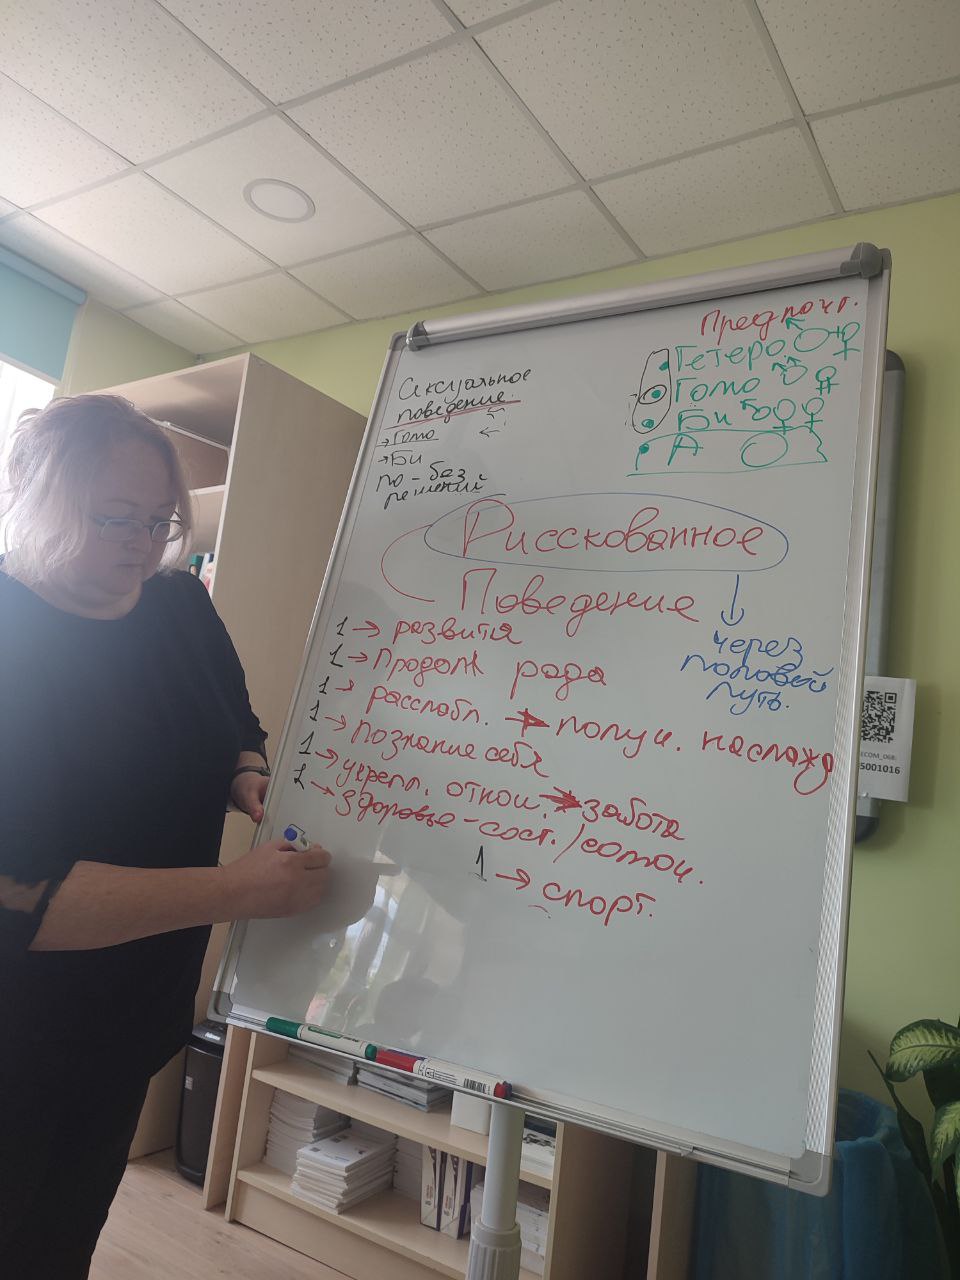 Сексуальное
поведение.
→ Гомо
→ Би
по-без
решений
Предпочт.
Гетеро
Гомо
Би
А
Рисскованное
Поведение
через
половой
путь.
1 → развития
1 → Продолж рода
1 → рассlабл. → получ. наслажд
1 → познание себя
1 → укрепл. отнош. → забота
1 → здоровье-сост./
1 → спорт.
5001016